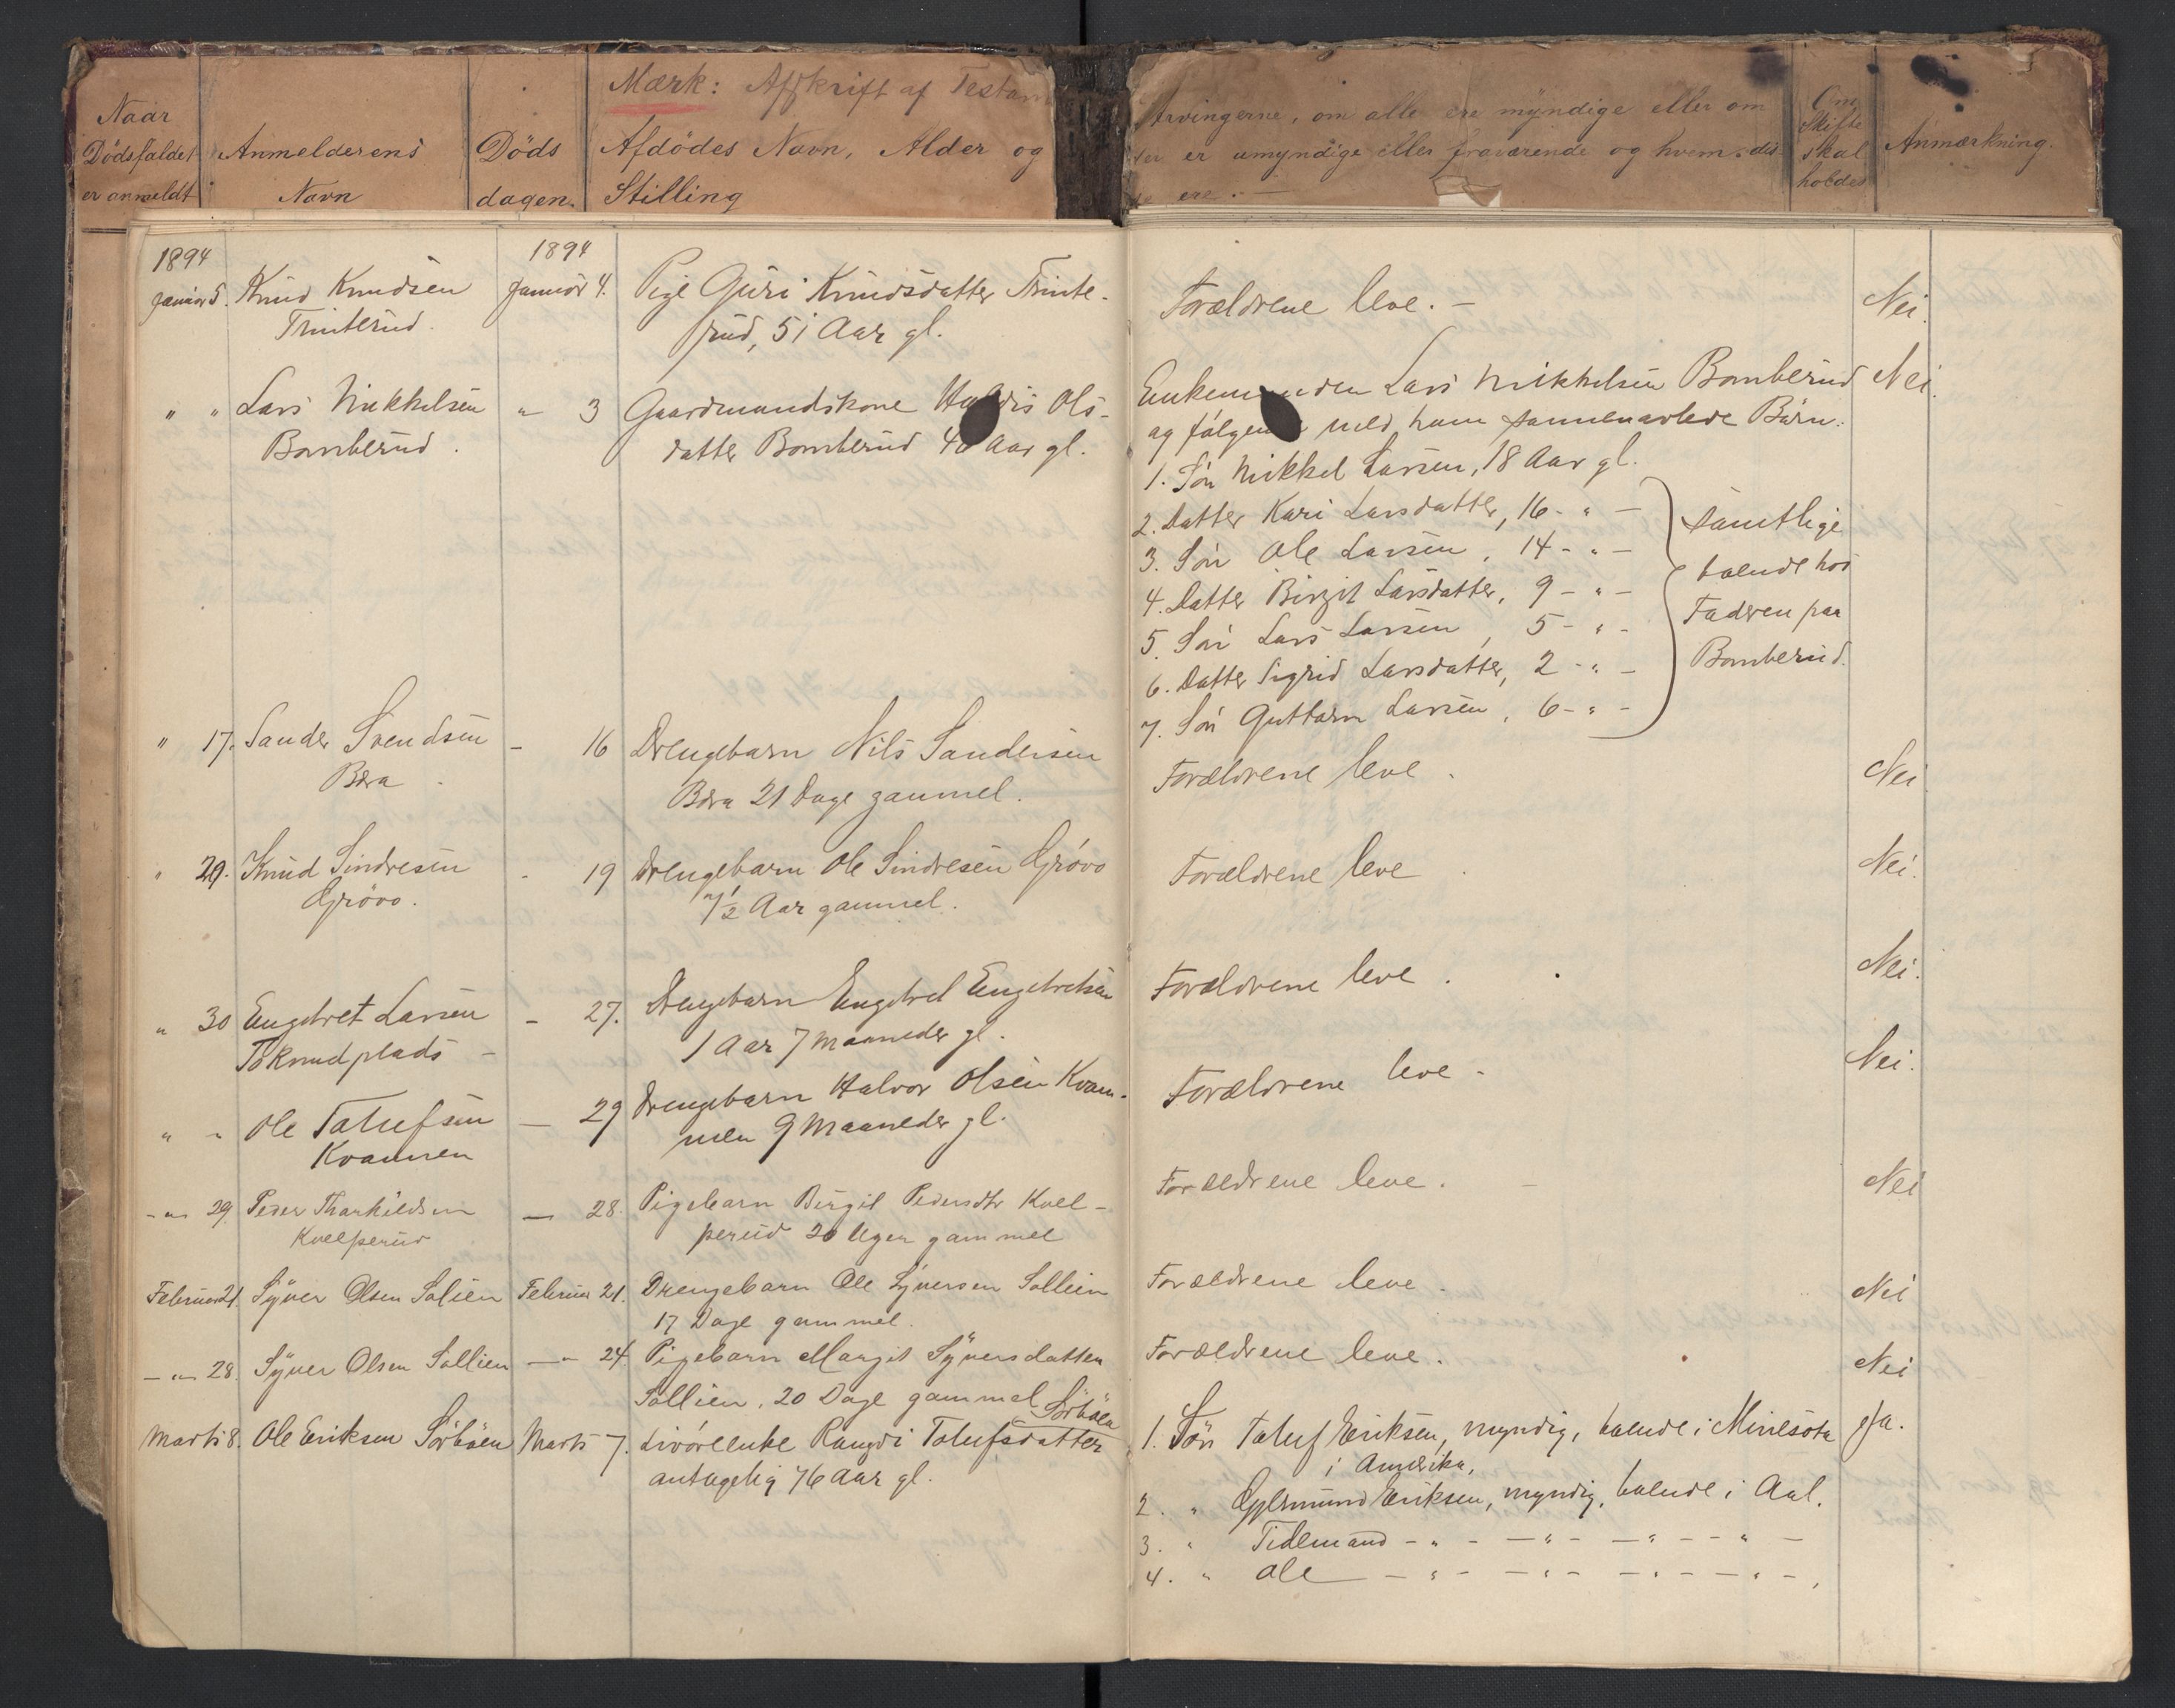 Mærk: Afskrift af Testam
Naar
Dödsfaldet
er anmeldt
Anmelderens
Navn
Döds
dagen.
Afdödes Navn, Alder og
Stilling
Arvingerne, om alle ere myndige eller om
er umyndige eller fraværende og hvem dis
ere. —
Om
Skifte
skal
holdes
Anmærkning.
1894
1894
Januar 5. Knud Knudsen Januar 4. Pige Guri Knudsdatter Trinte-
Trinterud. rud, 51 Aar gl.
Forældrene leve. — Nei.
" " Lars Mikkelsen " 3 Gaardmandskone Ols-
Bomberud. datter Bomberud Aar gl.
Lars Mikkelsen Bomberud Nei.
og med ham sammenavlede Börn:
1. Sön Mikkel Larsen, 18 Aar gl.
2. Datter Kari Larsdatter, 16 - " —
3. Sön Ole Larsen, 14 - " —
4. Datter Birgit Larsdatter, 9 - " —
5. Sön Lars Larsen, 5 - " -
6. Datter Sigrid Larsdatter, 2 - " —
7. Sön Guttorm Larsen, 6 - " -
samtlige
boende hos
Faderen paa
Bomberud.
" 17. Sander Svendsen - 16 Drengebarn Nils Sandersen
Bæra 21 Dage gammel.
Forældrene leve. Nei
" 29. Knud Sindresen - 19 Drengebarn Ole Sindresen Grövo
Grövo. 7½ Aar gammel.
Forældrene leve. Nei.
" 30 Engebret Larsen - 27. Drengebarn Engebret Engebretsen
1 Aar 7 Maaneder gl.
Forældrene leve. Nei.
" " Ole Tolufsen — 29 Drengebarn Halvor Olsen Kvam-
Kvammen men 9 Maaneder gl.
Forældrene leve. Nei.
- " - 29. Peder Tharkildsen — 28. Pigebarn Birgit Pedersdtr Kvel-
Kvelperud perud 20 Uger gammel
Forældrene leve. Nei
Februar 21. Syver Olsen Solien Februar 21. Drengebarn Ole Syversen Sollien
17 Dage gammel.
Forældrene leve. Nei
- " - 28. Syver Olsen Sollien — " 24. Pigebarn Margit Syversdatter
Sollien, 20 Dage gammel
Forældrene leve. Nei
Sörböen
Marts 8. Ole Eriksen Sörböen Marts 7. Livöreenke Rangdi Tolufsdatter
antagelig 76 Aar gl.
1. Sön Toluf Eriksen, myndig, boende i Minesota Ja.
i Amerika,
2. " Eriksen, myndig, boende i Aal.
3. " Tidemand - " - — " - — " - - " —
4. " Ole — - " - — " - — " - — " - ,